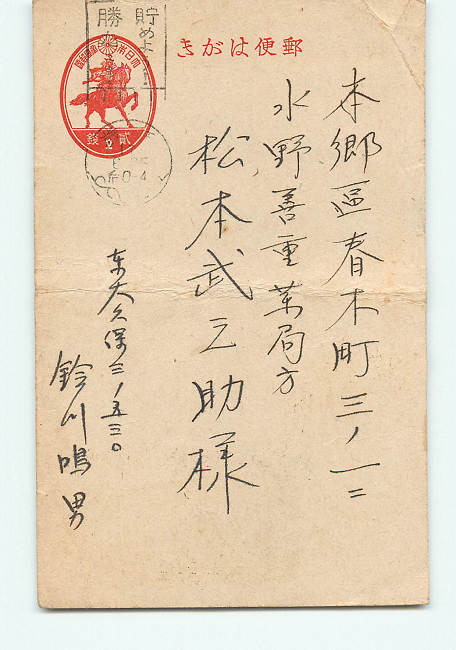 郵便はがき
大日本帝國郵便
貳錢
2
貯めよ
勝
本郷區春木町三ノ一二
水野善重薬局方
松本武之助様
东大久保三ノ五三〇
鈴川鳴男